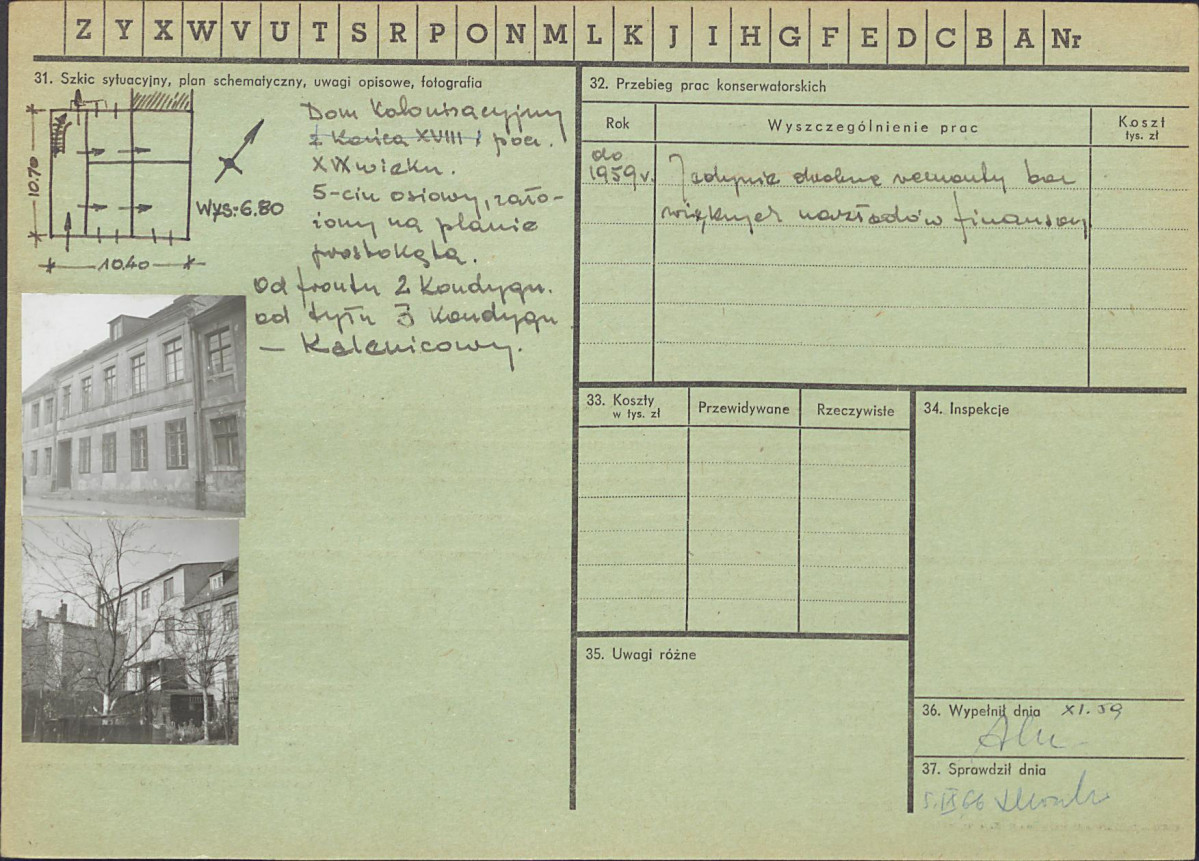 Z Y X W V U T S R P O N M L K J I H G F E D C B A Nr
31. Szkic sytuacyjny, plan schematyczny, uwagi opisowe, fotografia
10.70
10.40
Wys: 6.80
Dom Kolonizacyjny
z Końca XVIII i pocz.
XIX wieku.
5-cio osiowy, zało-
żony na planie
prostokąta.
Od frontu 2 Kondygn.
od tyłu 3 Kondygn
– Kalenicowy.
32. Przebieg prac konserwatorskich
Rok
Wyszczególnienie prac
Koszt
tys. zł
do
1959 r.
Jedynie drobne remonty bez
większych nakładów finansow
33. Koszty
w tys. zł
Przewidywane
Rzeczywiste
34. Inspekcje
35. Uwagi różne
36. Wypełnił dnia XI. 59
37. Sprawdził dnia
5.IX 66